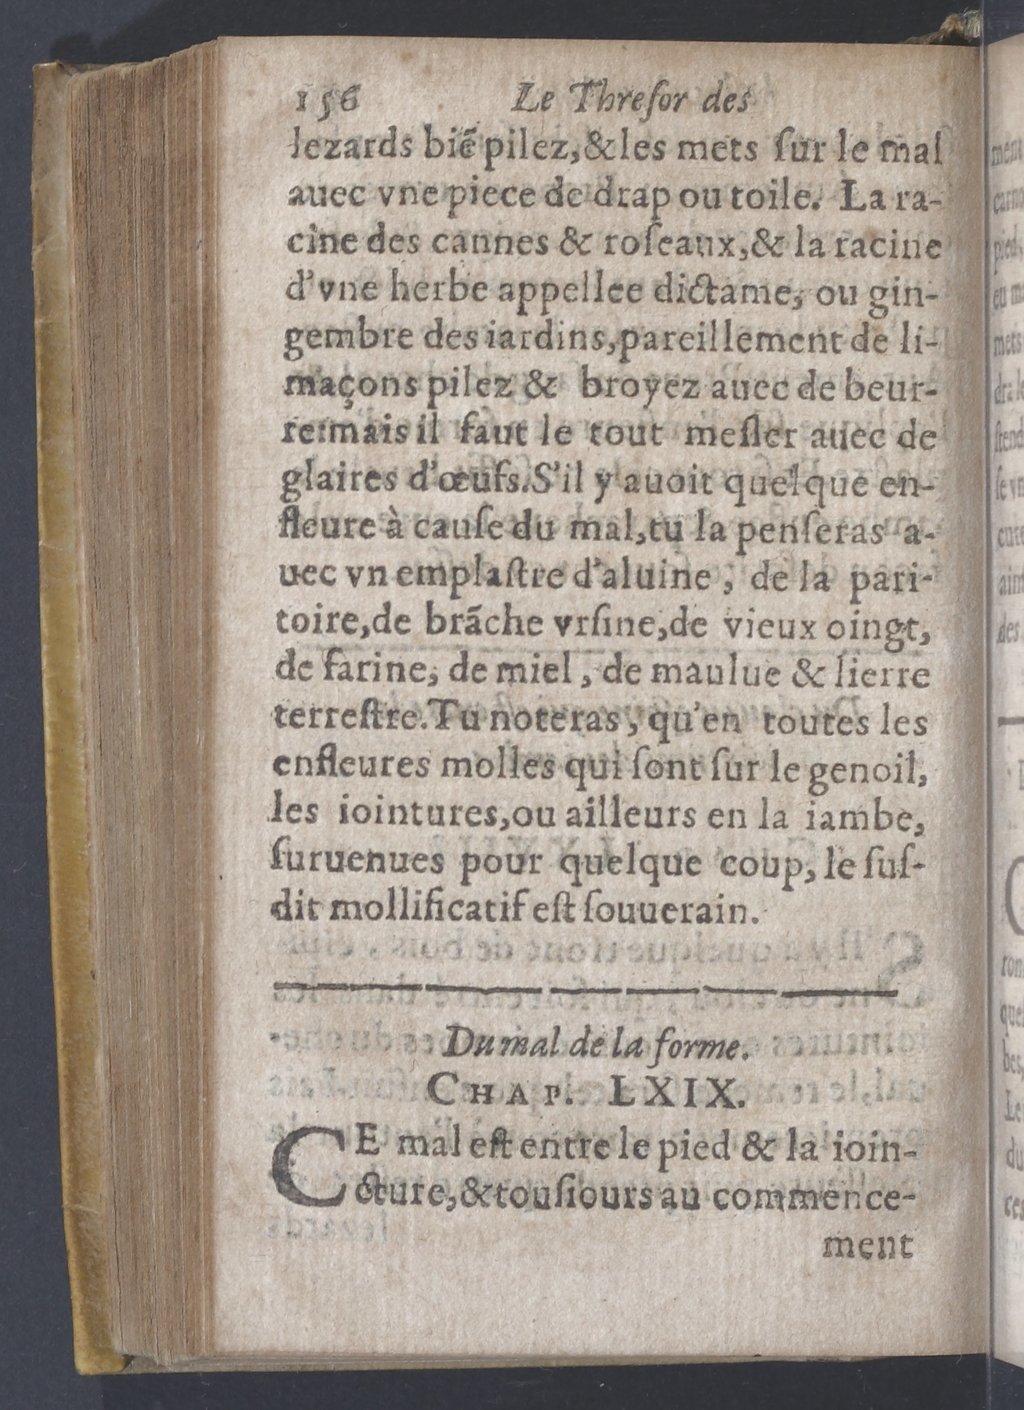 156 Le Threſor des
lezards biẽ pilez,&les mets ſur le mal
auec vne piece de drap ou toile. La ra-
cine des cannes & roſeaux,& la racine
d'vne herbe appellee dictame, ou gin-
gembre des iardins,pareillement de li-
maçons pilez & broyez auec de beur-
re:mais il faut le tout meſler auec de
glaires d'œufs.S'il y auoit quelque en-
fleure à cauſe du mal,tu la penſeras a-
uec vn emplaſtre d'aluine, de la pari-
toire,de brãche vrſine,de vieux oingt,
de farine, de miel, de maulue & lierre
terreſtre.Tu noteras, qu'en toutes les
enfleures molles qui ſont ſur le genoil,
les iointures,ou ailleurs en la iambe,
ſuruenues pour quelque coup, le ſuſ-
dit mollificatif eſt ſouuerain.
Du mal de la forme.
CHAP. LXIX.
CE mal eſt entre le pied & la ioin-
cture,&touſiours au commence-
ment